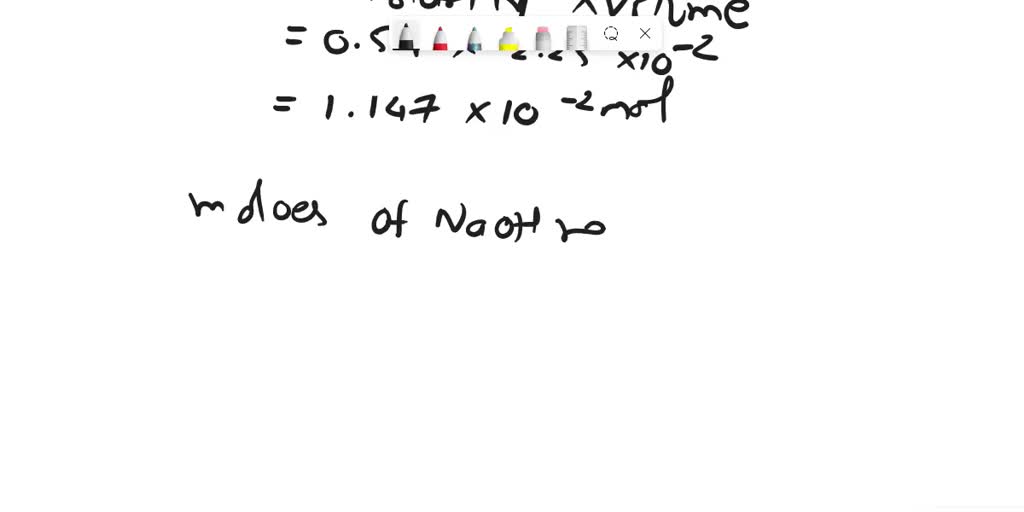 × volume
= 0.5 × 2.25 ×10⁻²
= 1.147 ×10⁻² mol
moles of NaOH re